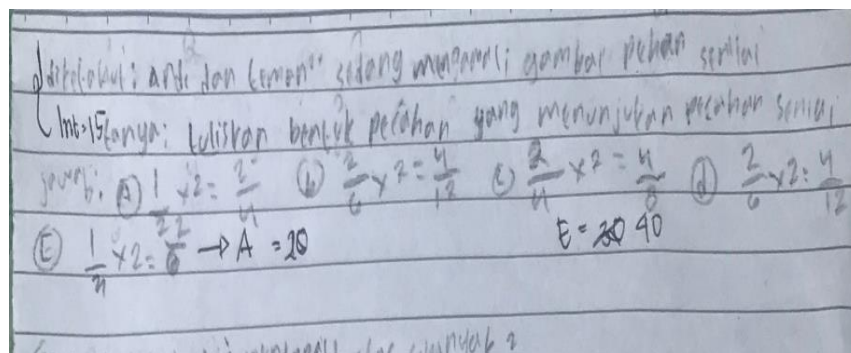 diketahui: andi dan teman" sedang mengamati gambar pchan senilai
Int=15 tanya: tuliskan bentuk pecahan yang menunjukan pecahan senilai
jawab: (A) 1/2 x2 = 2/4 (b) 2/6 x2 = 4/12 (c) 2/4 x2 = 4/8 (d) 2/6 x2 = 4/12
(E) 1/4 x2 = 2/8 → A = 20 E = 40